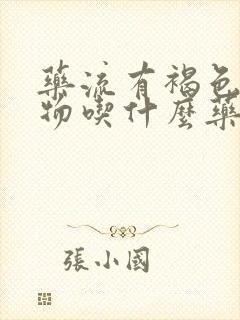 藥流有褐色
物喫什麼藥
張小國